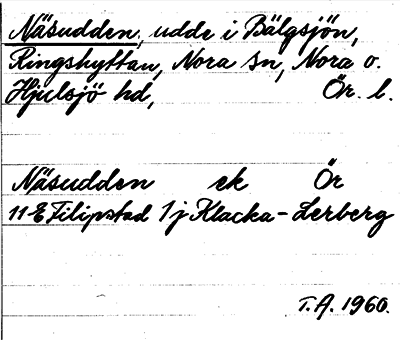 Näsudden, udde i Bälgsjön,
Ringshyttan, Nora sn, Nora o.
Hjulsjö hd, Ör. l.
Näsudden ek Ör
11 E Filipstad 1 j Klacka-Lerberg
T.A. 1960.